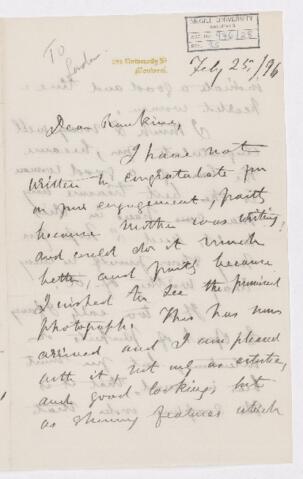 To
London
McGILL UNIVERSITY
ACC. NO.
REF.
University St
Montreal.
Feby 25./96
Dear Rankine,
I have not
written to congratulate you
on your engagement, partly
because mother was writing
and could do it much
better, and partly because
I wished to see the promised
photograph. This has now
arrived and I am pleased
with it, not only as artistic,
and good looking, but
as showing features which